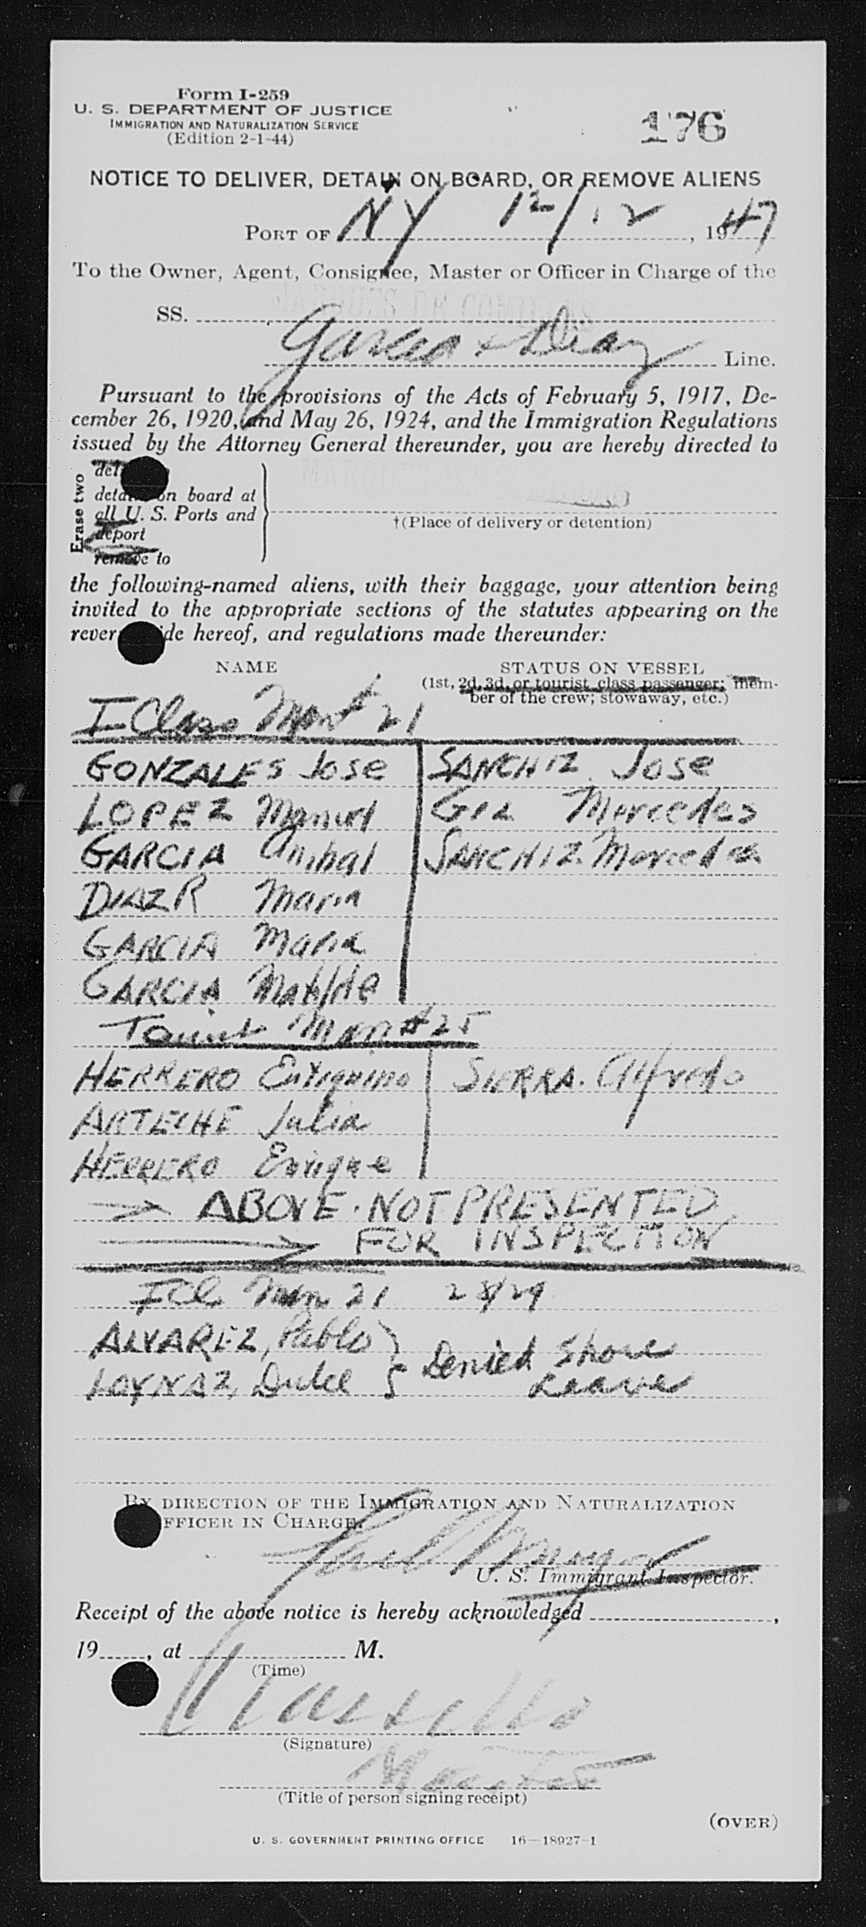 Form I-259
U. S. DEPARTMENT OF JUSTICE
IMMIGRATION AND NATURALIZATION SERVICE
(Edition 2-1-44)
176
NOTICE TO DELIVER, DETAIN ON BOARD, OR REMOVE ALIENS
PORT OF NY 12/12, 1947
To the Owner, Agent, Consignee, Master or Officer in Charge of the
SS.
Garcia & Diaz Line.
Pursuant to the provisions of the Acts of February 5, 1917, De-
cember 26, 1920, and May 26, 1924, and the Immigration Regulations
issued by the Attorney General thereunder, you are hereby directed to
Erase two
on board at
all U. S. Ports and
deport
remove to
†(Place of delivery or detention)
the following-named aliens, with their baggage, your attention being
invited to the appropriate sections of the statutes appearing on the
hereof, and regulations made thereunder:
NAME STATUS ON VESSEL
(1st, 2d, 3d, or tourist class passenger; mem-
ber of the crew; stowaway, etc.)
I Class Man # 21
GONZALES Jose SANCHIZ Jose
LOPEZ Manuel GIL Mercedes
GARCIA Anibal SANCHIZ Mercedes
DIAZ R Maria
GARCIA Maria
GARCIA Matilde
Tourist Man # 25
HERRERO SIERRA. Alfredo
ARTECHE Julia
HERRERO Enrique
ABOVE. NOT PRESENTED
FOR INSPECTION
I Cl. Man 21 28/29
ALVAREZ, Pablo } Denied Shore
LOYNAZ, Dulce } Leave
BY DIRECTION OF THE IMMIGRATION AND NATURALIZATION
OFFICER IN CHARGE,
U. S. Immigrant Inspector.
Receipt of the above notice is hereby acknowledged ,
19 , at M.
(Time)
(Signature)
Master
(Title of person signing receipt)
(OVER)
U. S. GOVERNMENT PRINTING OFFICE 16—18927-1